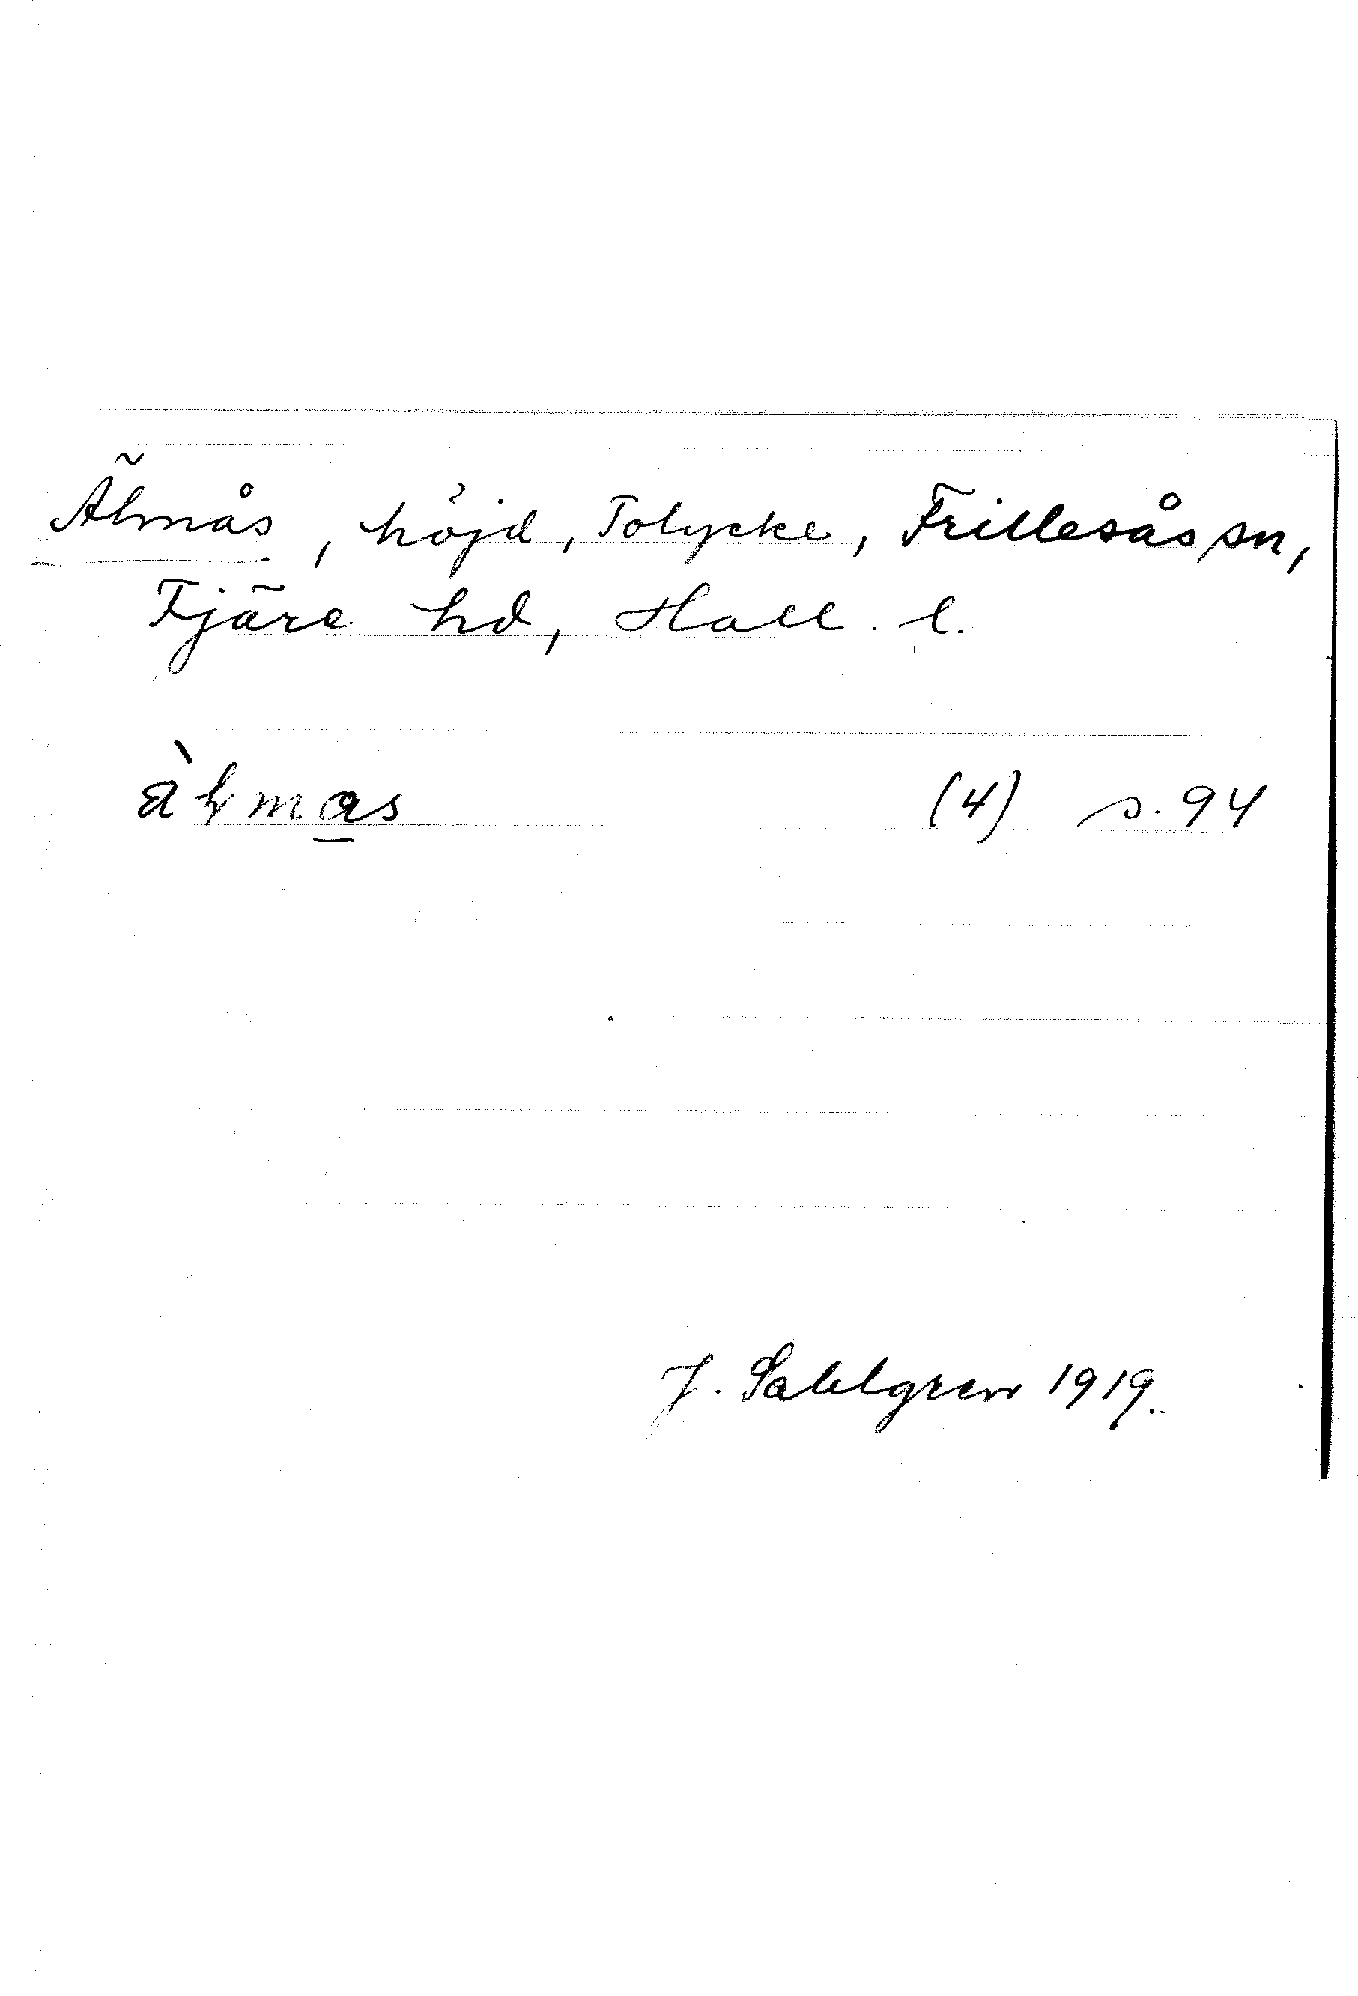 Älmås, höjd, Tolycke, Frillesås sn,
Fjäre hd, Hall. l.
(4) s. 94
J. Sahlgren 1919.